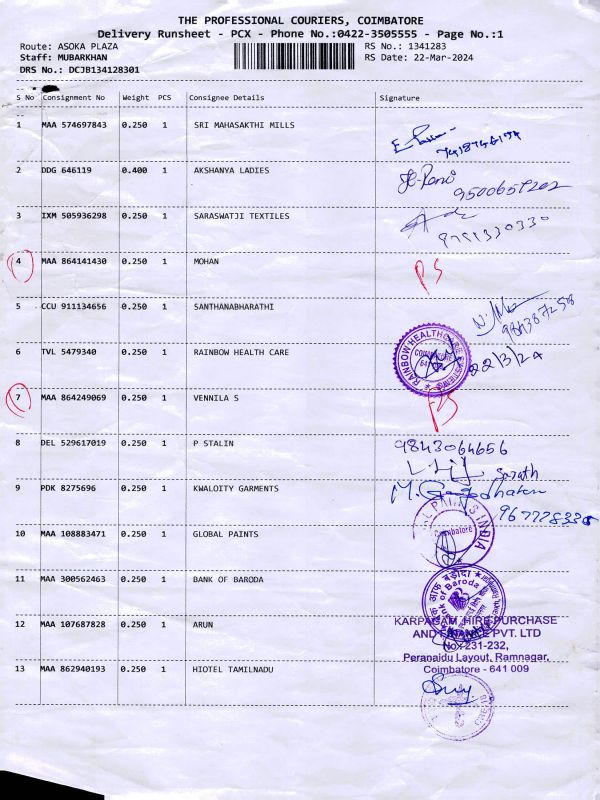 THE PROFESSIONAL COURIERS, COIMBATORE
Delivery Runsheet - PCX - Phone No.:0422-3505555 - Page No.:1
Route: ASOKA PLAZA
RS No.: 1341283
Staff: MUBARKHAN
RS Date: 22-Mar-2024
DRS No.: DCJB134128301
S No Consignment No Weight PCS Consignee Details Signature
1 MAA 574697843 0.250 1 SRI MAHASAKTHI MILLS
2 DDG 646119 0.400 1 AKSHANYA LADIES
9500657202
3 IXM 505936298 0.250 1 SARASWATJI TEXTILES
9791330330
4 MAA 864141430 0.250 1 MOHAN PS
5 CCU 911134656 0.250 1 SANTHANABHARATHI
984387258
6 TVL 5479340 0.250 1 RAINBOW HEALTH CARE
RAINBOW HEALTHCARE SYSTEMS
COIMBATORE
22/3/24
7 MAA 864249069 0.250 1 VENNILA S PS
8 DEL 529617019 0.250 1 P STALIN 9843064656
Sarath
9 PDK 8275696 0.250 1 KWALOITY GARMENTS M. Gangadharan
10 MAA 108883471 0.250 1 GLOBAL PAINTS
PAINTS INDIA
Coimbatore
11 MAA 300562463 0.250 1 BANK OF BARODA
ऑफ़ बड़ौदा
Bank of Baroda
12 MAA 107687828 0.250 1 ARUN
KARPAGAM HIRE PURCHASE
AND FINANCE PVT. LTD
No: 231-232,
Peranaidu Layout, Ramnagar,
Coimbatore - 641 009
13 MAA 862940193 0.250 1 HIOTEL TAMILNADU